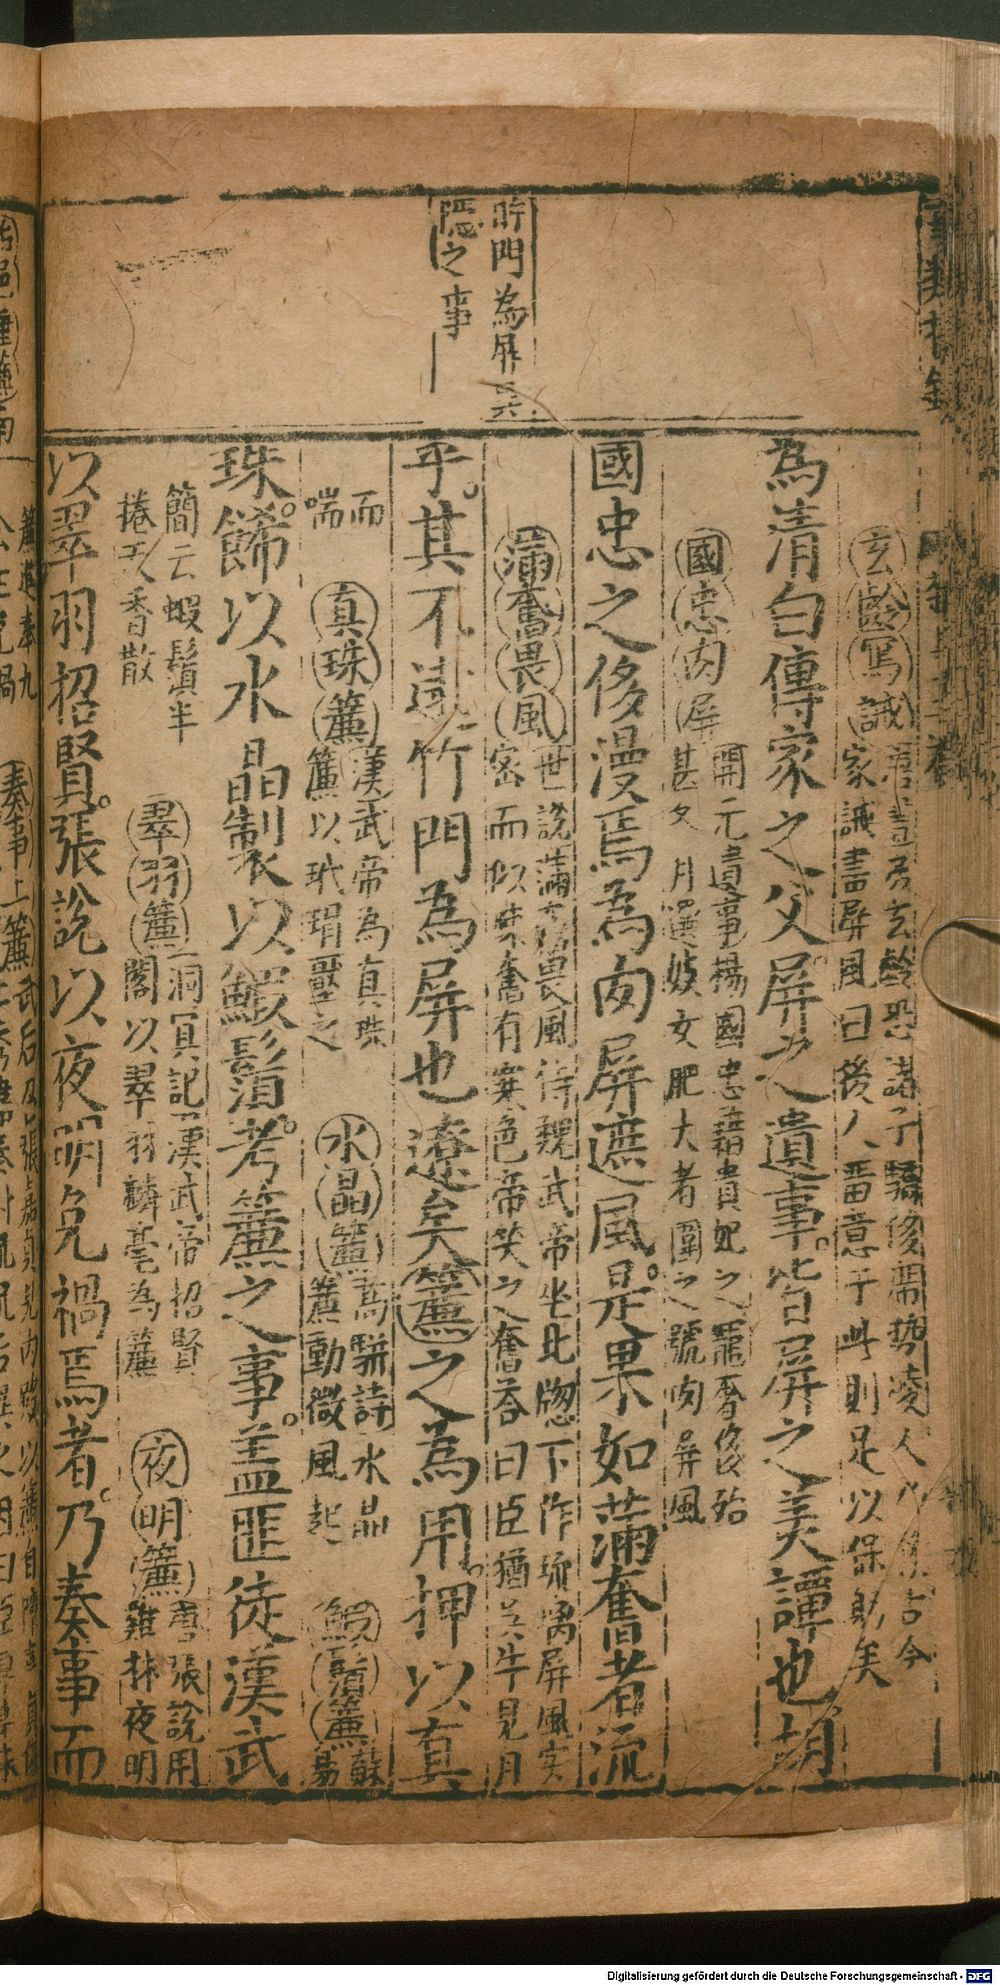 時門為屏只六
隱之事
玄齡寫誡 唐書房玄齡恐諸子驕侈席勢凌人乃集古今
家誡書屏風曰後人畱意于此則足以保躬矣
為清白傳家之父屏之遺事皆屏之美譚也胡
國忠肉屏 開元遺事楊國忠藉貴妃之寵奢侈殆
甚冬月選妓女肥大者圍之號肉屏風
國忠之侈漫焉為肉屏遮風是果如滿奮者流
滿奮畏風 世說滿奮畏風侍魏武帝坐北牕下作琉璃屏風实
密而似踈奮有寒色帝笑之奮荅曰臣猶吳牛見月
而喘
乎其不遠竹門為屏也遼矣簾之為用押以真
真珠簾 漢武帝為真珠
簾以玳瑁壓之
水晶簾 高駢詩水晶
簾動微風起
鰕鬚簾 蘇易
簡云蝦鬚半
捲天香散
珠餙以水晶製以鰕鬚考簾之事盖匪徒漢武
翠羽簾 洞冥記漢武帝招賢
閣以翠羽麟毫為簾
夜明簾 唐張說用
雞林夜明
以翠羽招賢張說以夜明免禍焉者乃奏事而
Digitalisierung gefördert durch die Deutsche Forschungsgemeinschaft - DFG